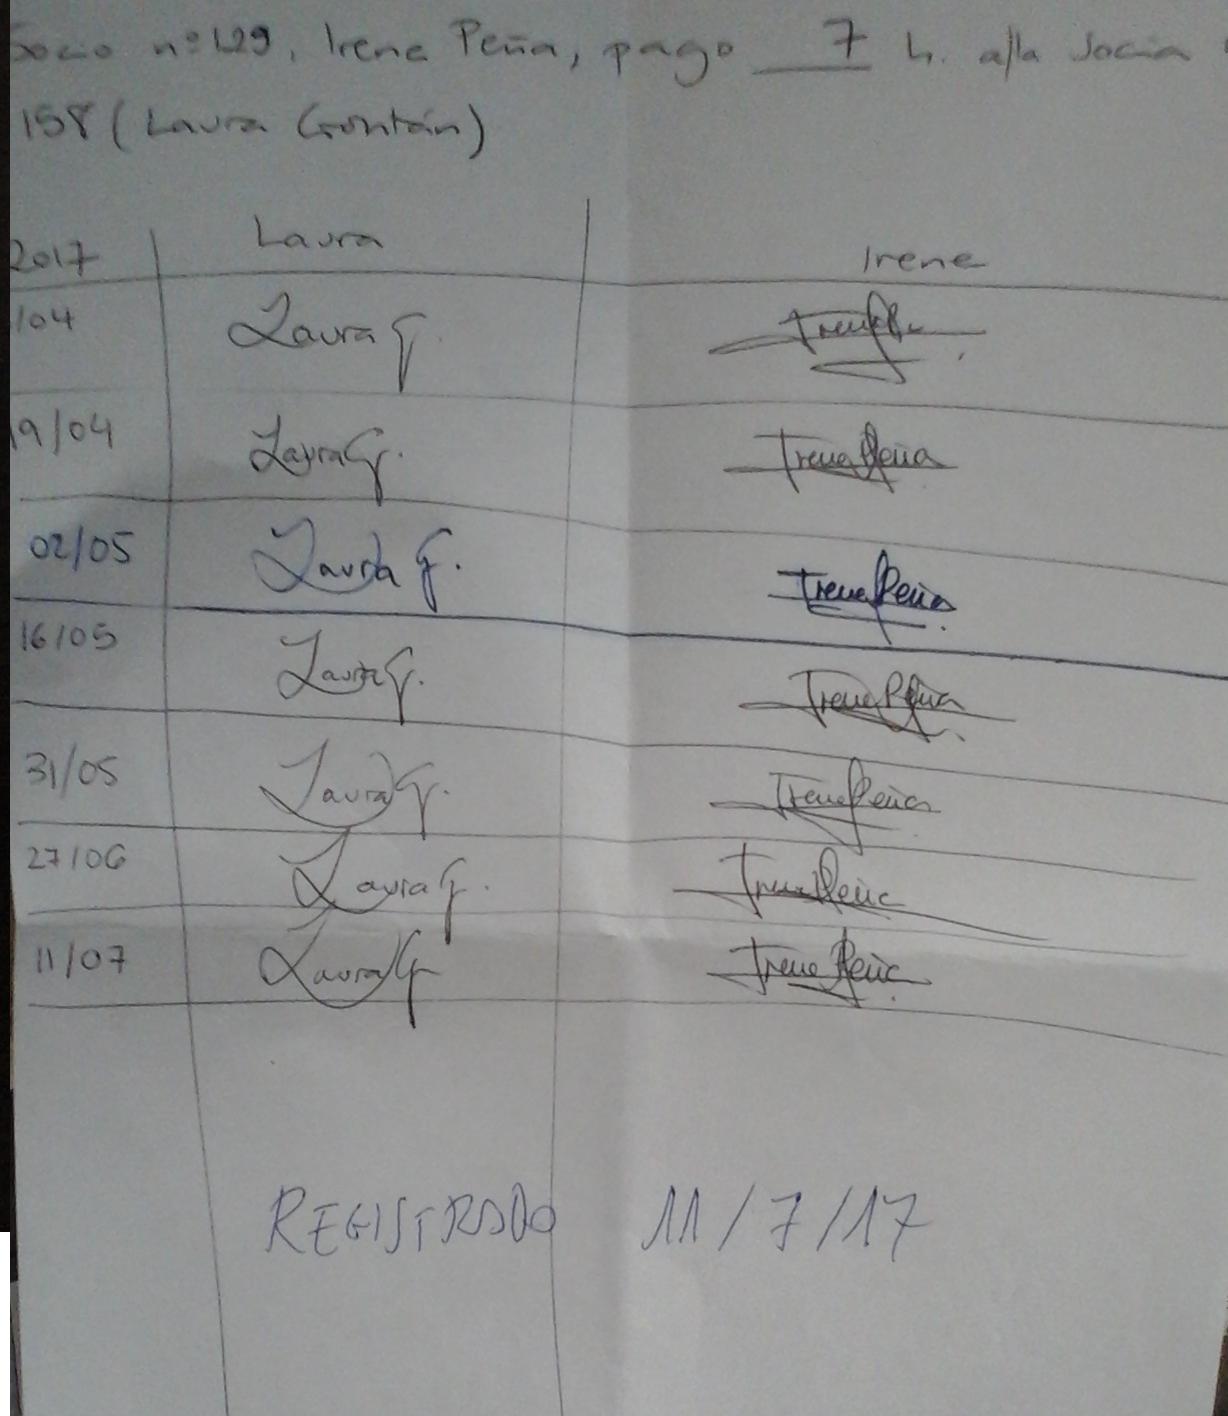 Socio nº 129, Irene Peña, pago 7 h. a/la socia
158 (Laura Gontán)
2017 Laura Irene
/04 Laura G. Irene Peña
19/04 Laura G. Irene Peña
02/05 Laura G. Irene Peña
16/05 Laura G. Irene Peña
31/05 Laura G. Irene Peña
27/06 Laura G. Irene Peña
11/07 Laura G Irene Peña
REGISTRADO 11/7/17